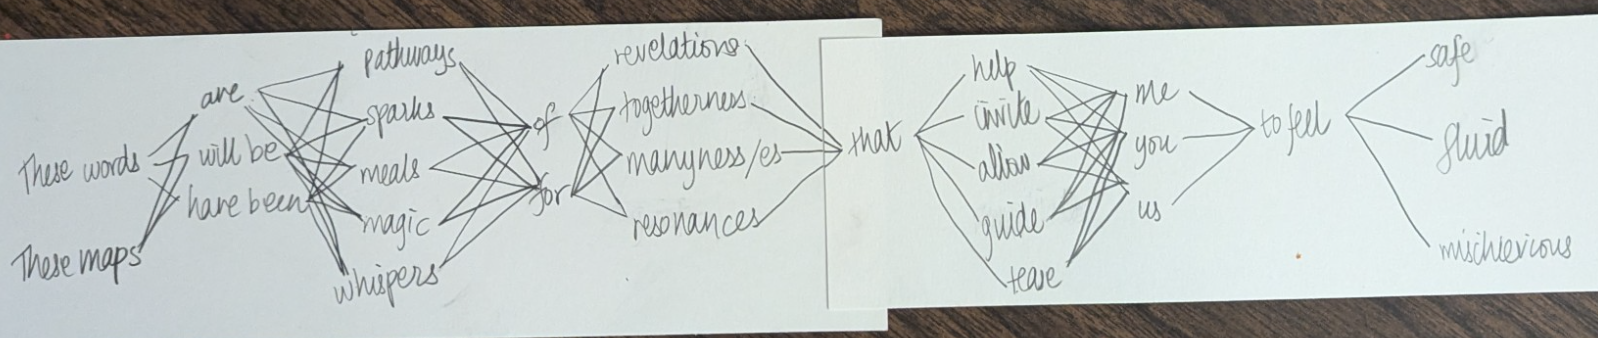 These words
These maps
are
will be
have been
pathways
sparks
meals
magic
whispers
of
for
revelations
togetherness
manyness/es
resonances
that
help
invite
allow
guide
tease
me
you
us
to feel
safe
fluid
mischievious